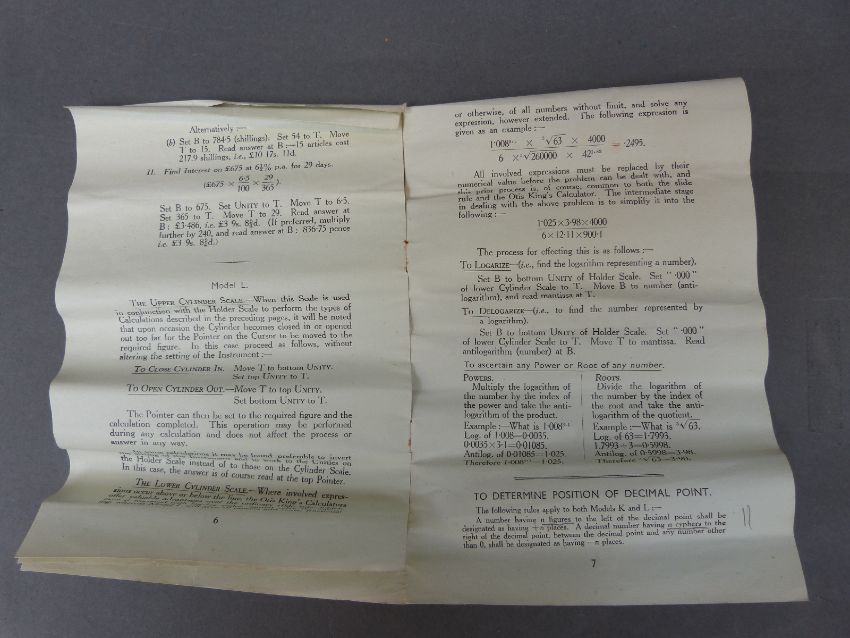 Alternatively :—
(b) Set B to 784·5 (shillings). Set 54 to T. Move
T to 15. Read answer at B :—15 articles cost
217.9 shillings, i.e., £10 17s. 11d.
11. Find Interest on £675 at 6½% p.a. for 29 days.
(£675 × 6·5/100 × 29/365)
Set B to 675. Set UNITY to T. Move T to 6·5.
Set 365 to T. Move T to 29. Read answer at
B ; £3·486, i.e. £3 9s. 8¾d. (If preferred, multiply
further by 240, and read answer at B ; 836·75 pence
i.e. £3 9s. 8¾d.)
Model L.
THE UPPER CYLINDER SCALE.—When this Scale is used
in conjunction with the Holder Scale to perform the types of
Calculations described in the preceding pages, it will be noted
that upon occasion the Cylinder becomes closed in or opened
out too far for the Pointer on the Cursor to be moved to the
required figure. In this case proceed as follows, without
altering the setting of the Instrument :—
TO CLOSE CYLINDER IN. Move T to bottom UNITY.
Set top UNITY to T.
TO OPEN CYLINDER OUT.—Move T to top UNITY.
Set bottom UNITY to T.
The Pointer can then be set to the required figure and the
calculation completed. This operation may be performed
during any calculation and does not affect the process or
answer in any way.
In some calculations it may be found preferable to invert
the Holder Scale instead of to those on the Cylinder Scale.
In this case, the answer is of course read at the top Pointer.
THE LOWER CYLINDER SCALE.—Where involved expres-
sions occur above or below the line, the Otis King's Calculators
6
or otherwise, of all numbers without limit, and solve any
expression, however extended. The following expression is
given as an example :—
1·008³·¹ × ³√63 × 4000
= ·2495.
6 × √260000 × 42
All involved expressions must be replaced by their
numerical value before the problem can be dealt with, and
this prior process is, of course, common to both the slide
rule and the Otis King's Calculator. The intermediate stage
in dealing with the above problem is to simplify it into the
following :—
1·025×3·98×4000
6×12·11×900·1
The process for effecting this is as follows :—
TO LOGARIZE—(i.e., find the logarithm representing a number).
Set B to bottom UNITY of Holder Scale. Set " ·000 "
of lower Cylinder Scale to T. Move B to number (anti-
logarithm), and read mantissa at T.
TO DELOGARIZE—(i.e., to find the number represented by
a logarithm).
Set B to bottom UNITY of Holder Scale. Set " ·000 "
of lower Cylinder Scale to T. Move T to mantissa. Read
antilogarithm (number) at B.
To ascertain any Power or Root of any number.
POWERS.
Multiply the logarithm of
the number by the index of
the power and take the anti-
logarithm of the product.
Example :—What is 1·008³·¹
Log. of 1·008=0·0035.
0·0035×3·1=0·01085.
Antilog. of 0·01085=1·025.
Therefore 1·008³·¹=1·025.
ROOTS.
Divide the logarithm of
the number by the index of
the root and take the anti-
logarithm of the quotient.
Example :—What is ³√63.
Log. of 63=1·7993.
1.7993÷3=0·5998.
Antilog. of 0·5998=3·98.
Therefore ³√63=3·98.
TO DETERMINE POSITION OF DECIMAL POINT.
The following rules apply to both Models K and L :—
A number having n figures to the left of the decimal point shall be
designated as having +n places. A decimal number having n cyphers to the
right of the decimal point, between the decimal point and any number other
than 0, shall be designated as having —n places.
7